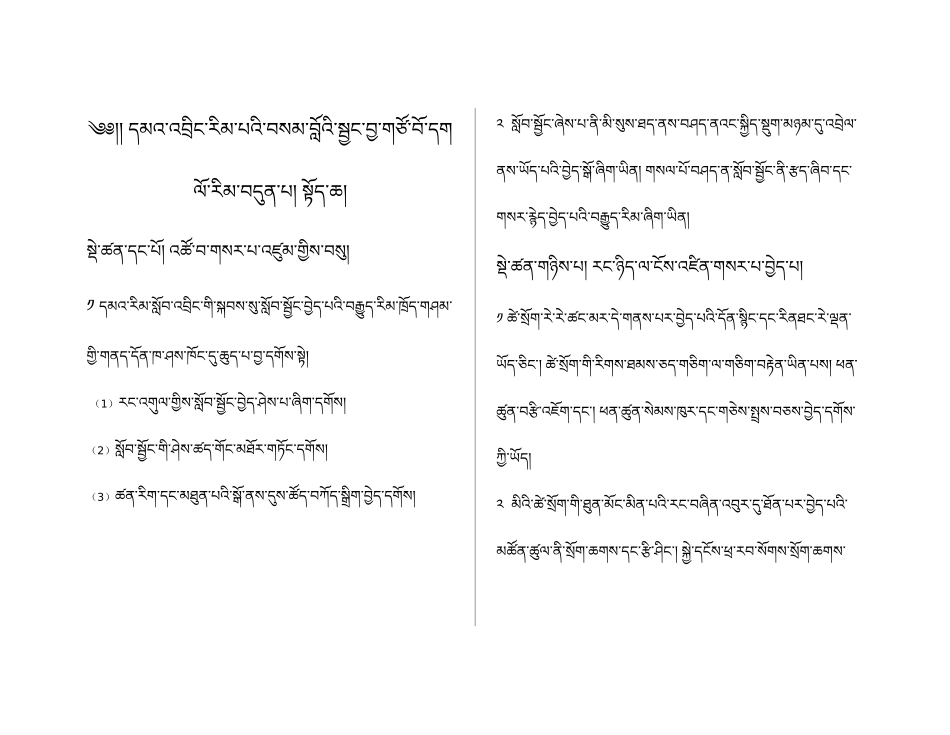 ༄༅།། དམའ་འབྲིང་རིམ་པའི་བསམ་བློའི་སྦྱང་བྱ་གཙོ་བོ་དག
ལོ་རིམ་བདུན་པ། སྟོད་ཆ།
སྡེ་ཚན་དང་པོ། འཚོ་བ་གསར་པ་འཛུམ་གྱིས་བསུ།
༡ དམའ་རིམ་སློབ་འབྲིང་གི་སྐབས་སུ་སློབ་སྦྱོང་བྱེད་པའི་བརྒྱུད་རིམ་ཁྲོད་གཤམ་
གྱི་གནད་དོན་ཁ་ཤས་ཁོང་དུ་ཆུད་པ་བྱ་དགོས་སྟེ།
（1）རང་འགུལ་གྱིས་སློབ་སྦྱོང་བྱེད་ཤེས་པ་ཞིག་དགོས།
（2）སློབ་སྦྱོང་གི་ཤེས་ཚད་གོང་མཐོར་གཏོང་དགོས།
（3）ཚན་རིག་དང་མཐུན་པའི་སྒོ་ནས་དུས་ཚོད་བཀོད་སྒྲིག་བྱེད་དགོས།
༢ སློབ་སྦྱོང་ཞེས་པ་ནི་མི་སུས་ཐད་ནས་བཤད་ནའང་སྐྱིད་སྡུག་མཉམ་དུ་འབྲེལ་
ནས་ཡོད་པའི་བྱེད་སྒོ་ཞིག་ཡིན། གསལ་པོ་བཤད་ན་སློབ་སྦྱོང་ནི་རྩད་ཞིབ་དང་
གསར་རྙེད་བྱེད་པའི་བརྒྱུད་རིམ་ཞིག་ཡིན།
སྡེ་ཚན་གཉིས་པ། རང་ཉིད་ལ་ངོས་འཛིན་གསར་པ་བྱེད་པ།
༡ ཚེ་སྲོག་རེ་རེ་ཚང་མར་དེ་གནས་པར་བྱེད་པའི་དོན་སྙིང་དང་རིནཐང་རེ་ལྡན་
ཡོད་ཅིང་། ཚེ་སྲོག་གི་རིགས་ཐམས་ཅད་གཅིག་ལ་གཅིག་བརྟེན་ཡིན་པས། ཕན་
ཚུན་བརྩི་འཇོག་དང་། ཕན་ཚུན་སེམས་ཁུར་དང་གཅེས་སྤྲས་བཅས་བྱེད་དགོས་
ཀྱི་ཡོད།
༢ མིའི་ཚེ་སྲོག་གི་ཐུན་མོང་མིན་པའི་རང་བཞིན་འབུར་དུ་ཐོན་པར་བྱེད་པའི་
མཚོན་ཚུལ་ནི་སྲོག་ཆགས་དང་རྩི་ཤིང་། སྐྱེ་དངོས་ཕྲ་རབ་སོགས་སྲོག་ཆགས་